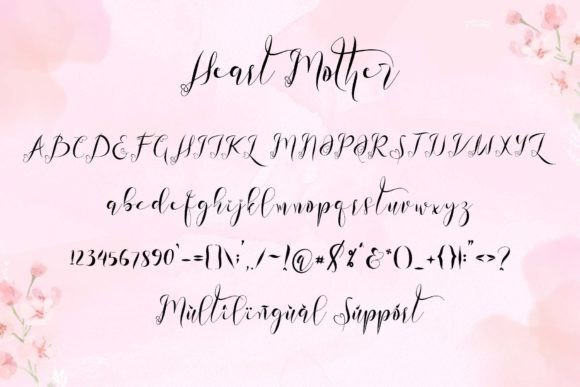 Heart Mother
ABCDEFGHIJKL MNOPQRSTUVWXYZ
abcdefghijklmnopqrstuvwxyz
1234567890`-=[]\;',./~!@#$%^&*()_+{}|:"<>?
Mùltilïñgùàl Sùppórt